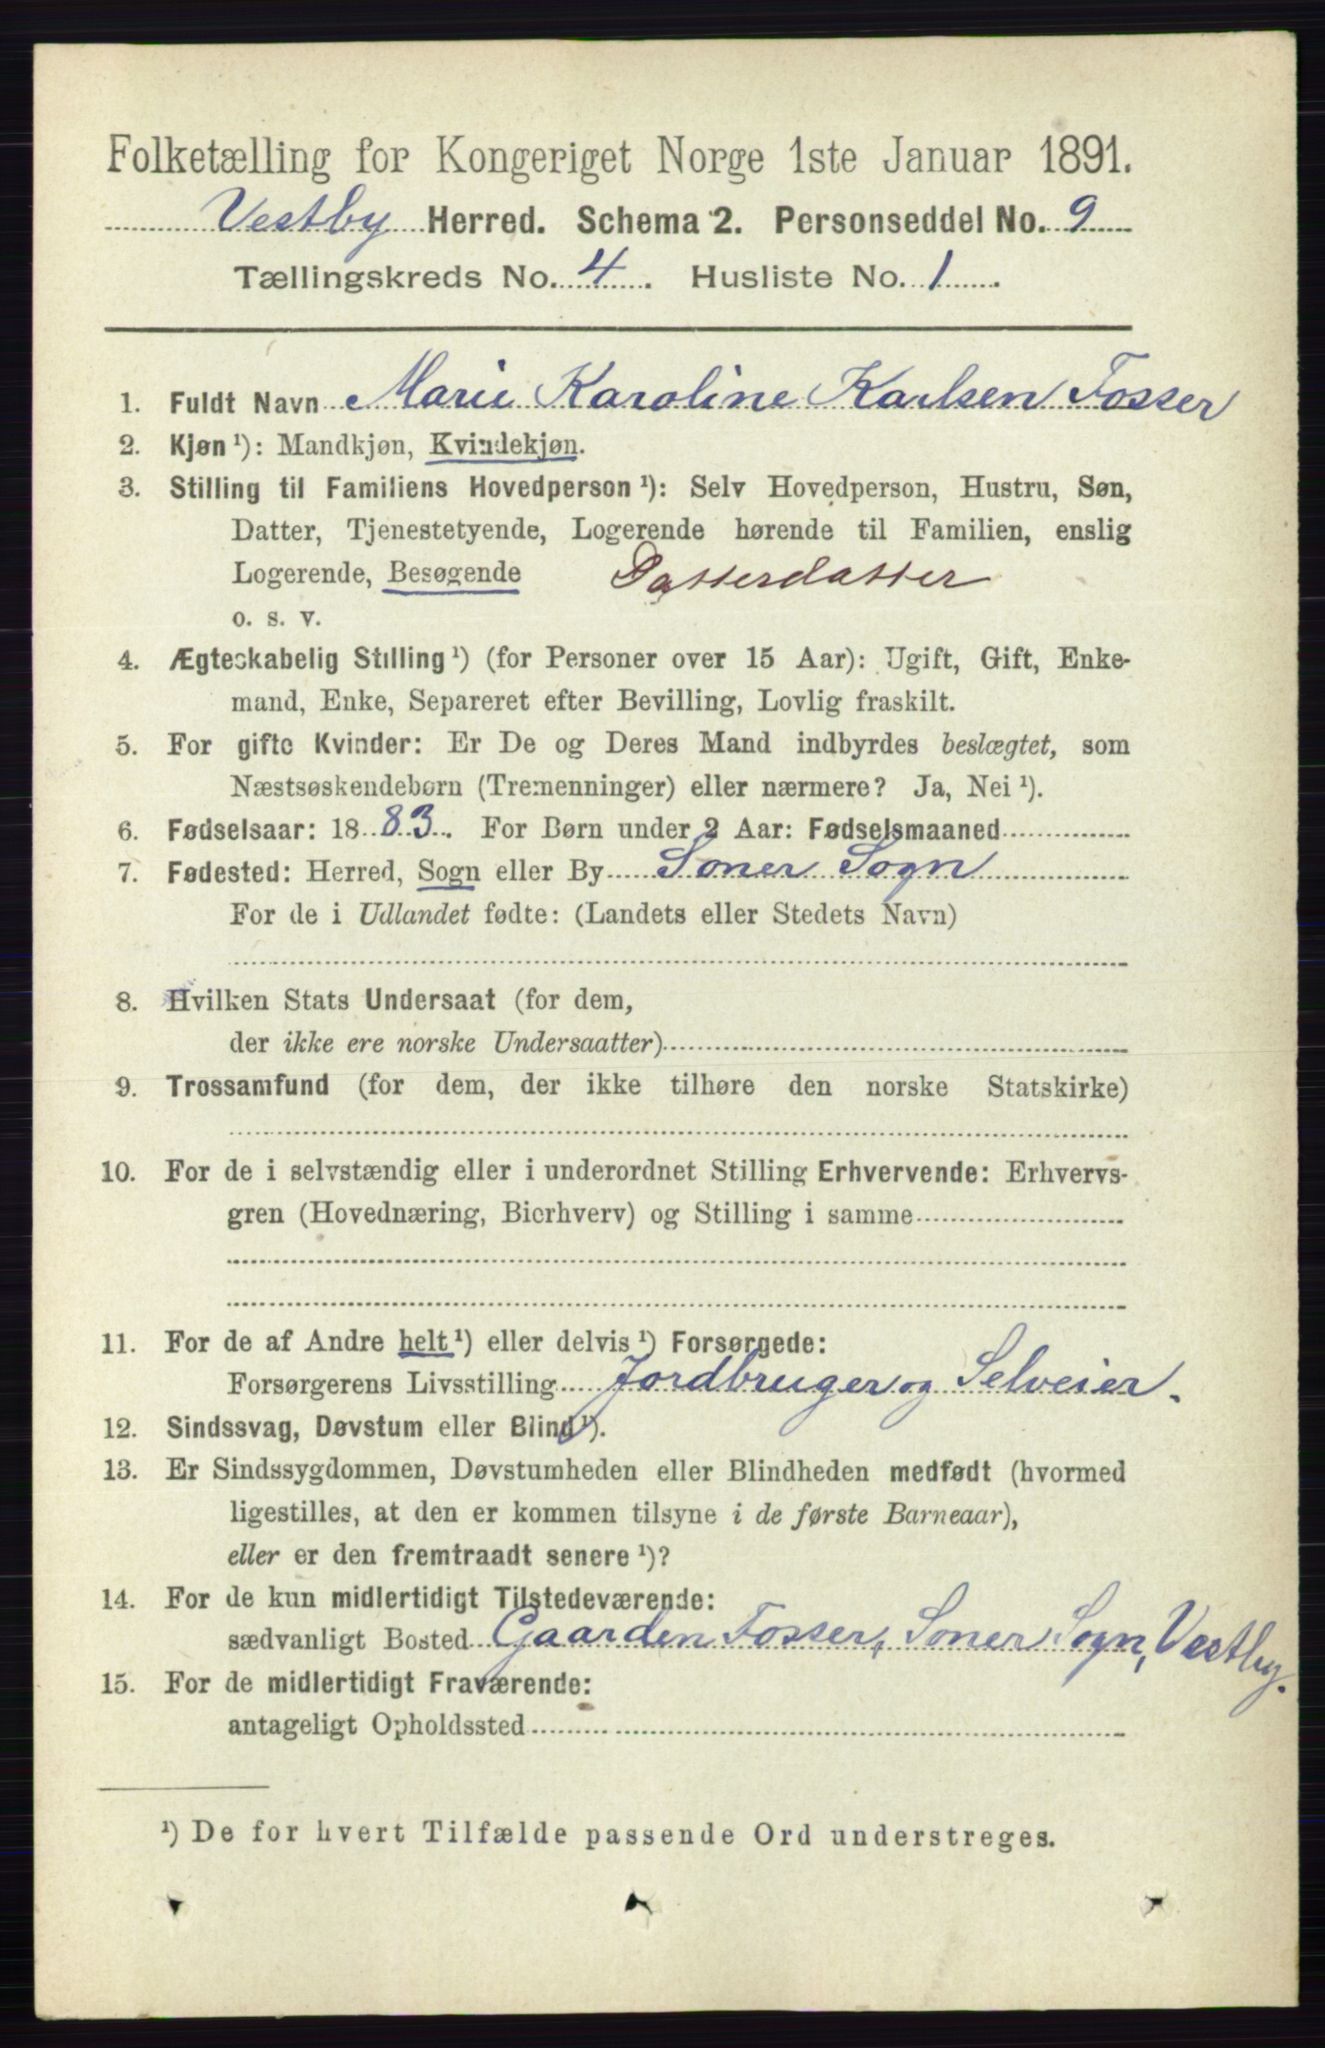 Folketælling for Kongeriget Norge 1ste Januar 1891.
Vestby Herred. Schema 2. Personseddel No. 9
Tællingskreds No. 4. Husliste No. 1.
1. Fuldt Navn Marie Karoline Karlsen Fosser
2. Kjøn ¹): Mandkjøn, Kvindekjøn.
3. Stilling til Familiens Hovedperson ¹): Selv Hovedperson, Hustru, Søn,
Datter, Tjenestetyende, Logerende hørende til Familien, enslig
Logerende, Besøgende Datterdatter
o. s. v.
4. Ægteskabelig Stilling ¹) (for Personer over 15 Aar): Ugift, Gift, Enke-
mand, Enke, Separeret efter Bevilling, Lovlig fraskilt.
5. For gifte Kvinder: Er De og Deres Mand indbyrdes beslægtet, som
Næstsøskendebørn (Tremenninger) eller nærmere? Ja, Nei ¹).
6. Fødselsaar: 1883. For Børn under 2 Aar: Fødselsmaaned
7. Fødested: Herred, Sogn eller By Soner Sogn
For de i Udlandet fødte: (Landets eller Stedets Navn)
8. Hvilken Stats Undersaat (for dem,
der ikke ere norske Undersaatter)
9. Trossamfund (for dem, der ikke tilhøre den norske Statskirke)
10. For de i selvstændig eller i underordnet Stilling Erhvervende: Erhvervs-
gren (Hovednæring, Bierhverv) og Stilling i samme
11. For de af Andre helt ¹) eller delvis ¹) Forsørgede:
Forsørgerens Livsstilling Jordbruger og Selveier.
12. Sindssvag, Døvstum eller Blind ¹).
13. Er Sindssygdommen, Døvstumheden eller Blindheden medfødt (hvormed
ligestilles, at den er kommen tilsyne i de første Barneaar),
eller er den fremtraadt senere ¹)?
14. For de kun midlertidigt Tilstedeværende:
sædvanligt Bosted Gaarden Fosser, Soner Sogn, Vestby.
15. For de midlertidigt Fraværende:
antageligt Opholdssted
¹) De for hvert Tilfælde passende Ord understreges.